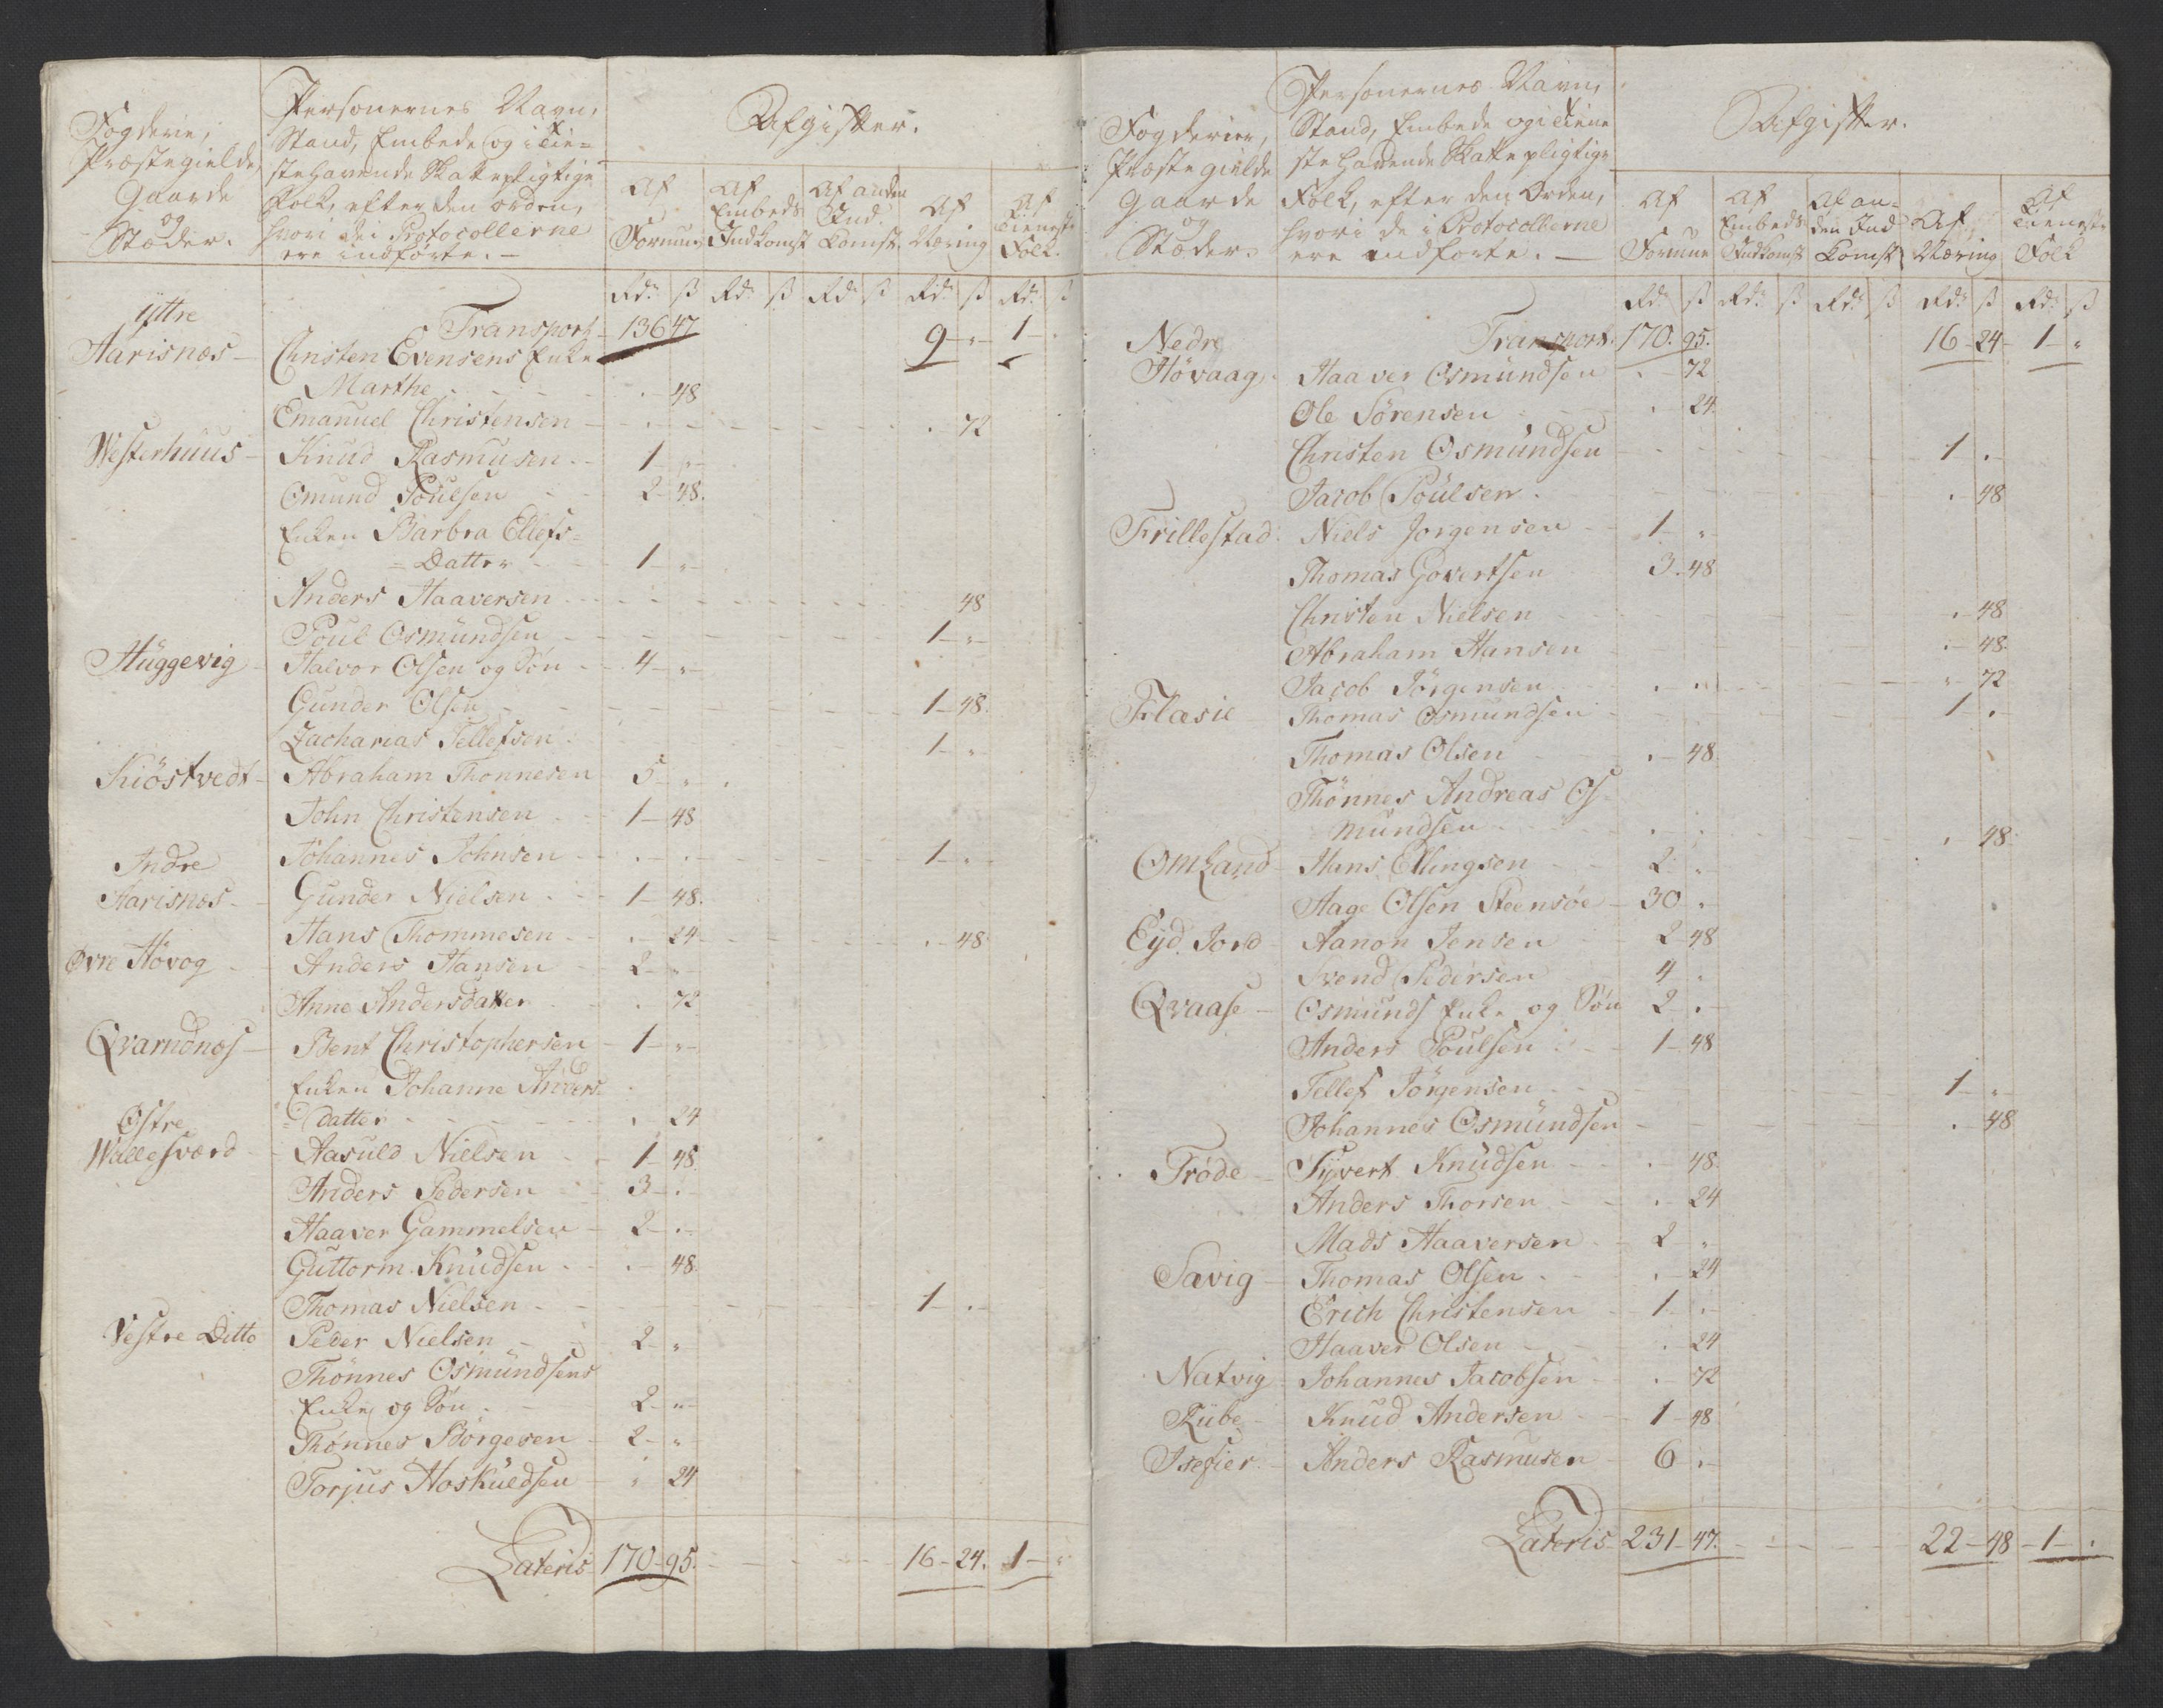 Fogderie,
Præstegielde,
Gaarde
og
Stæder.
Personernes Navn,
Stand, Embede og i Tie=
ste havende Skattepligtige
Folk, efter den orden,
hvori de i Protocollerne
ere indførte. —
Afgifter.
Af Formue
Af Embeds Indkomst
Af anden Ind komst
Af Næring
Af Tieneste Folk.
Rdr ß Rdr ß Rdr ß Rdr ß Rdr ß
Transport 136 47 9 - 1 -
Yttre
Aarisnæs — Christen Evensens Enke
Marthe . - 48
Emanuel Christensen . - 72
Westerhuus — Knud Rasmusen 1 - "
Omund Poulsen 2 - 48.
Enken Barbra Ellefs=
= Datter 1 - "
Anders Haaversen 48
Poul Osmundsen 1 - "
Huggevig — Halvor Olsen og Søn 4 - "
Gunder Olsen 1 - 48.
Zacharias Tellefsen 1 - "
Kiöstvedt — Abraham Thonnesen 5 - "
John Christensen 1 - 48
Johannes Johnsen 1 - "
Indre
Aarisnæs — Gunder Nielsen 1 - 48.
Hans Thommesen . - 24 . - 48
Øvre Høvog — Anders Hansen 2 - "
Anne Andersdatter . 72
Qvarndnæs — Bent Christophersen 1 - "
Enken Johanne Anders
= datter . 24
Østre
Wallesværd — Aasuld Nielsen 1 - 48
Anders Pedersen 3 - .
Haaver Gammelsen 2 - .
Guttorm Knudsen . - 48.
Thomas Nielsen 1 - .
Vestre Ditto Peder Nielsen 2 - "
Thönnes Osmundsens
Enke og Søn 2 - "
Thönnes Börgesen 2 - "
Torjus Hoskuldsen " 24
Lateris 170 - 95. 16 - 24. 1 - "
Fogderier,
Præstegielde
Gaarde
og
Stæder.
Personernes Navn,
Stand, Embede og i Tiene
ste havende Skattepligtige
Folk, efter den Orden,
hvori de i Protocollerne
ere indførte. —
Afgifter.
Af Formue
Af Embeds Indkomst
Af an= den Ind komst
Af Næring
Af Tieneste Folk
Rdr ß Rdr ß Rdr ß Rdr ß Rdr ß
Transport 170. 95. 16 - 24 - 1 - "
Nedre
Høvaag — Haaver Osmundsen . - 72
Ole Sörensen . - 24
Christen Osmundsen 1 . -
Jacob Poulsen . . 48
Frillestad Niels Jorgensen 1 - "
Thomas Govertsen 3 - 48
Christen Nielsen . - 48
Abraham Hansen . - 48.
Jacob Jörgensen " 72
Flæsie Thomas Osmundsen 1 - . -
Thomas Olsen . - 48.
Thönnes Andreas Os=
mundsen . 48.
Omland — Hans Ellingsen 2 - "
Aage Olsen Steensøe 30 .
Eyd. Jord — Aanon Jensen 2 - 48
Svend Pedersen 4 .
Qvaase — Osmunds Enke og Søn 2 . -
Anders Poulsen 1 - 48
Tellef Jörgensen 1 - "
Johannes Osmundsen . - 48
Tröde — Syvert Knudsen . - 48.
Anders Thorsen . 24
Mads Haaversen 2 "
Sævig — Thomas Olsen . - 24
Erich Christensen 1 - . -
Haaver Olsen . 24
Natvig Johannes Jacobsen . - 72
Kube — Knud Andersen 1 - 48
Isefier — Anders Rasmusen 6 . -
Lateris 231 - 47. 22 - 48 - 1 - .